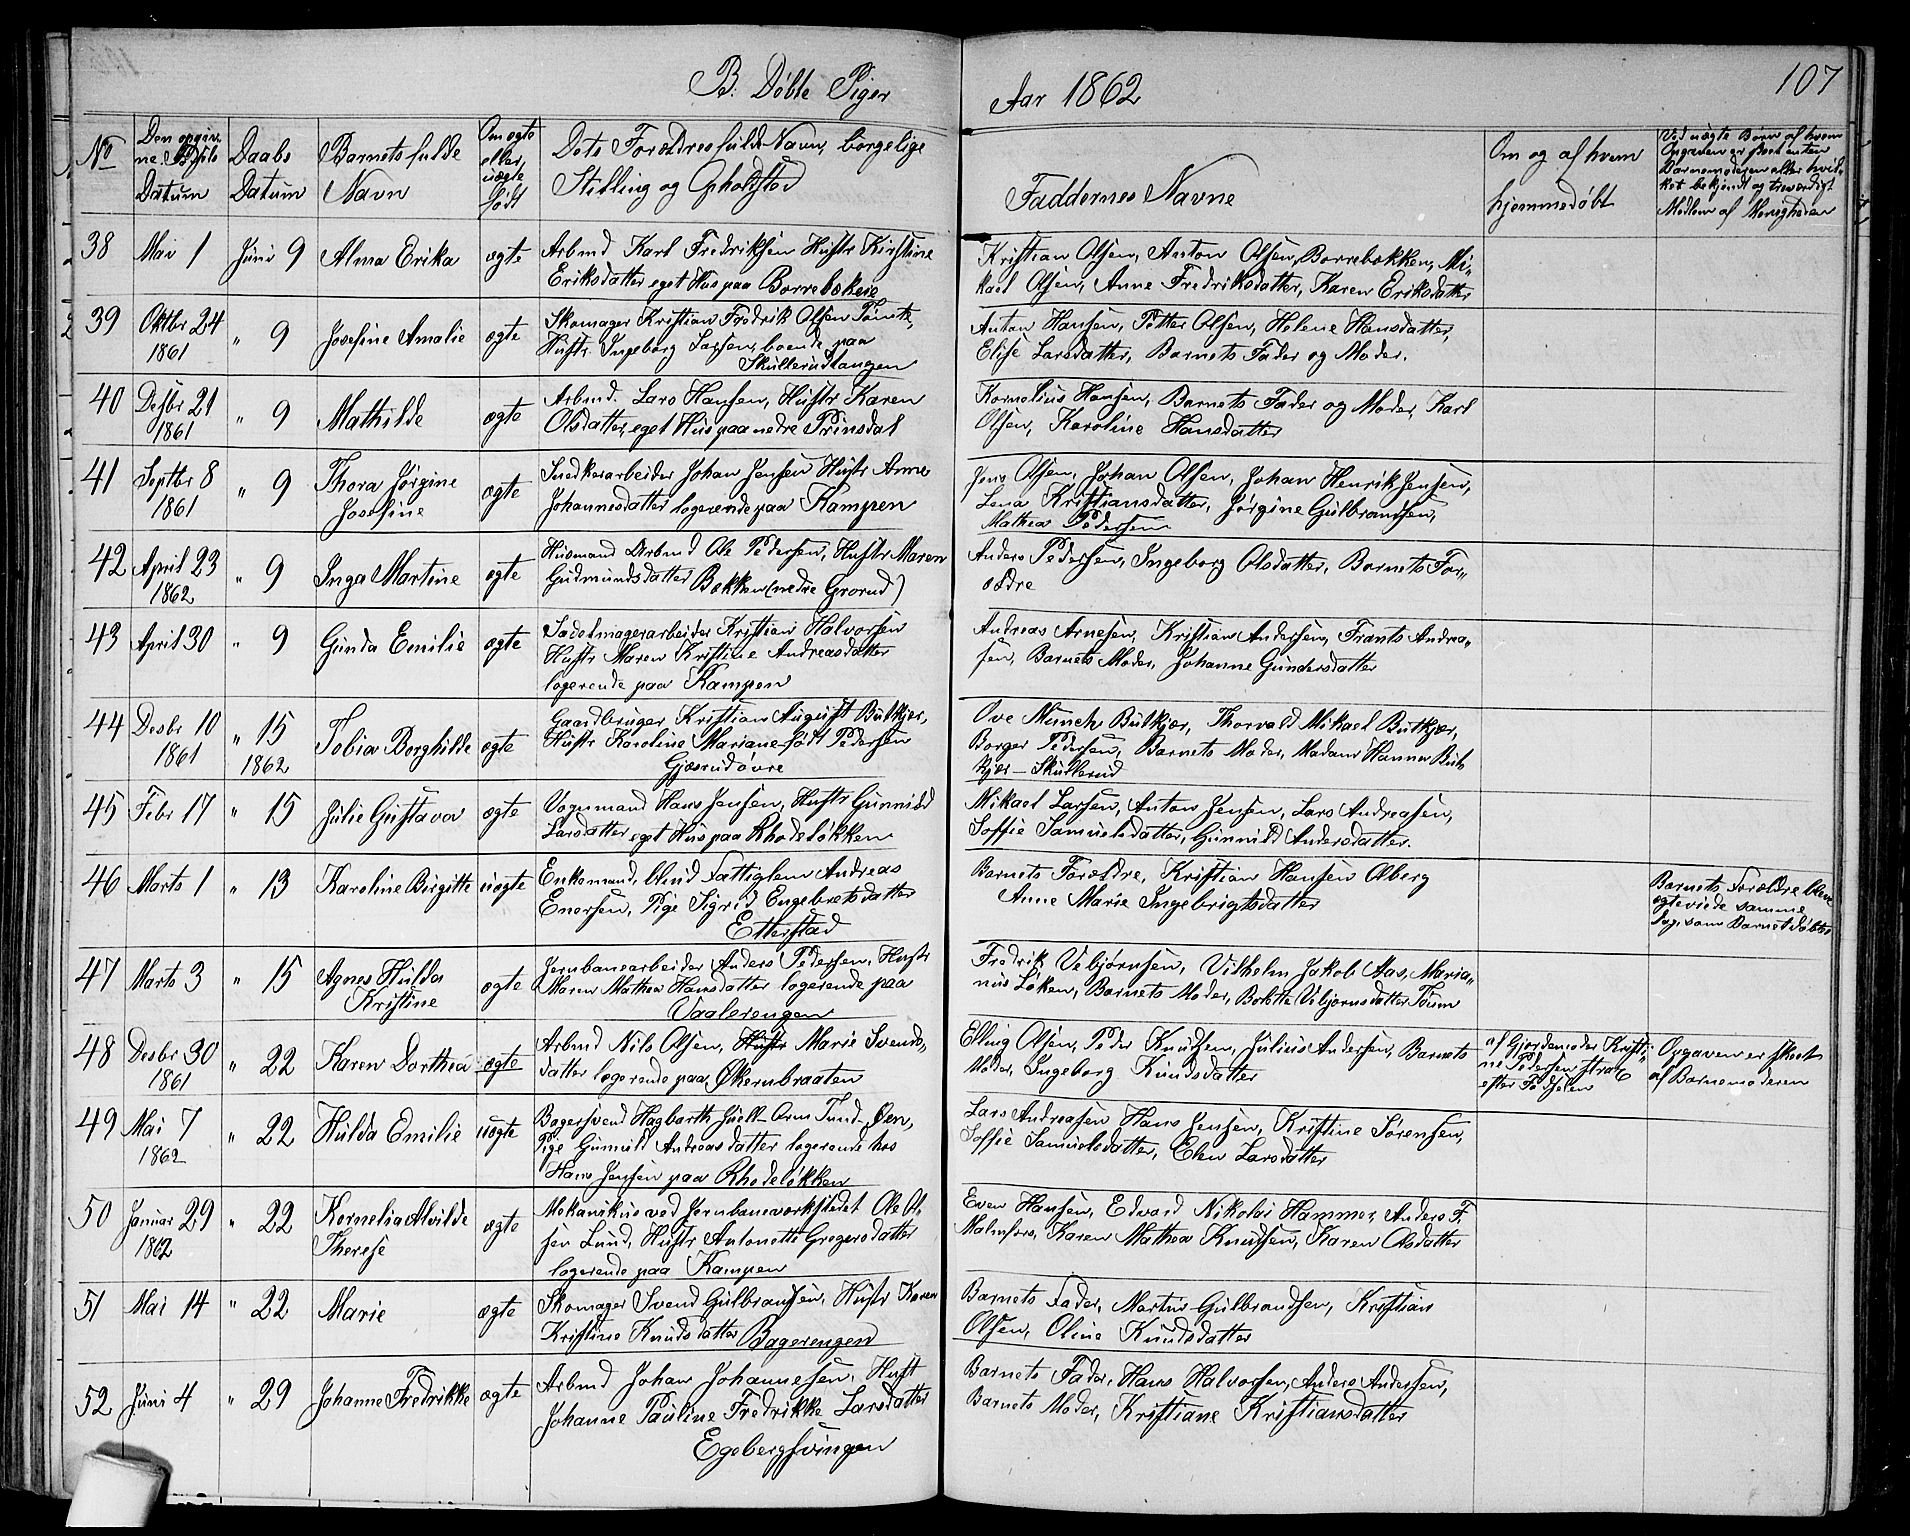 B. Døbte Piger
Aar 1862
107
No
Den opgiv-
ne Fødsels
Datum
Daabs
Datum
Barnets fulde
Navn
Om ægte
eller
uægte
født
Dets Forældres fulde Navn, borgelige
Stilling og Opholdsted
Faddernes Navne
Om og af hvem
hjemmedøbt
Ved uægte Børn af hvem
Opgaven er skeet enten
Barnemoderen eller hvil-
ket bekjendt og troværdigt
Medlem af Menigheden
38 Mai 1 Juni 9 Alma Erika ægte
Arbmd Karl Fredriksen Hustr Kirstine
Eriksdatter eget Hus paa Borrebække
Kristian Olsen, Anton Olsen, Borrebækken, Mi-
kael Olsen, Anne Fredriksdatter, Karen Eriksdatter
39 Oktbr 24 " 9 Josefine Amalie ægte
1861
Skomager Kristian Fredrik Olsen
Hustr. Ingeborg Larsen, boende paa
Skullerudtangen
Anton Hansen, Petter Olsen, Helene Hansdatter,
Elise Larsdatter, Barnets Fader og Moder.
40 Desbr 21 " 9 Mathilde ægte
1861
Arbmd. Lars Hansen, Hustr Karen
Olsdatter, eget Hus paa nedre Prinsdal
Kornelius Hansen, Barnets Fader og Moder, Karl
Olsen, Karoline Hansdatter
41 Septbr 8 " 9 Thora Jørgine ægte
1861 Josefine
Snedkerarbeider Johan Jensen Hustr Anne
Johannesdatter logerende paa Kampen
Jens Olsen, Johan Olsen, Johan Henrik Jensen,
Lena Kristiansdatter, Jørgine Gulbrandsen,
Mathea Pedersen
42 April 23 " 9 Inga Martine ægte
1862
Husmand Arbmd Ole Pedersen, Hustr Maren
Gudmundsdatter Bækken (nedre Grorud)
Anders Pedersen, Ingeborg Olsdatter, Barnets For-
ældre
43 April 30 " 9 Gunda Emilie ægte
Sadelmagerarbeider Kristian Halvorsen
Hustr Maren Kristine Andreasdatter
logerende paa Kampen
Andreas Arnesen, Kristian Andersen, Frants Andrea-
sen, Barnets Moder, Johanne Gundersdatter
44 Desbr 10 " 15 Tobia Borghilde ægte
1861 1862
Gaardbruger Kristian August Butkjær,
Hustr Karoline Mariane født Pedersen
Gjærud øvre
Ove Munch Butkjær, Thorvald Mikael Butkjær,
Borger Pedersen, Barnets Moder, Madam Hanna But-
kjær – Skullerud
45 Febr 17 " 15 Julie Gustava ægte
Vognmand Hans Jensen, Hustr Gunnild
Larsdatter eget Hus paa Rhodeløkken
Mikael Larsen, Anton Jensen, Lars Andreasen,
Soffie Samuelsdatter, Gunnild Andersdatter.
46 Marts 1 " 13 Karoline Birgitte uægte
Enkemand, blind Fattiglem Andreas
Enersen, Pige Sigrid Engebretsdatter
Etterstad
Barnets Forældre, Kristian Hansen Aberg
Anne Marie Ingebrigtsdatter
Barnets Forældre bleve
ægteviede samme
Dag, som Barnet døbtes
47 Marts 3 " 15 Agnes Hulda ægte
Kristine
Jernbanearbeider Anders Pedersen, Hustr
Maren Mathea Hansdatter logerende paa
Vaalerengen
Fredrik Vebjørnsen, Vilhelm Jakob Aas, Maria-
nus Løken, Barnets Moder, Bolette Vebjørnsdatter
48 Desbr 30 " 22 Karen Dorthea ægte
1861
Arbmd Nils Olsen, Hustr Marie Svends-
datter logerende paa Økernbraaten
Elling Olsen, Peder Knudsen, Julius Andersen, Barnets
Moder, Ingeborg Knudsdatter
af Gjordemoder Kristi-
ne Pedersen strax
efter Fødselen
Opgaven er skeet
af Barnemoderen
49 Mai 7 " 22 Hulda Emilie uægte
1862
Bagersvend Hagbarth Juell
Pige Gunnild Andreasdatter logerende hos
Hans Jensen paa Rhodeløkken
Lars Andreasen Hans Jensen, Kristine Sørensen,
Soffie Samuelsdatter, Elen Larsdatter
50 Januar 29 " 22 Kornelia Alvilde ægte
1862 Therese
Mekanikus ved Jernbaneværkstedet Ole Ol-
sen Lund, Hustr Antonette Gregersdatter
logerende paa Kampen
Even Hansen, Edvard Nikolai Hammer, Anders F.
Malmfors, Karen Mathea Knudsen, Karen Olsdatter
51 Mai 14 " 22 Marie ægte
Skomager Svend Gulbransen, Hustr Karen
Kristine Knudsdatter Bagerengen
Barnets Fader, Martin Gulbrandsen, Kristian
Olsen, Oline Knudsdatter
52 Juni 4 " 29 Johanne Fredrikke ægte
Arbmd Johan Johannesen, Hust
Johanne Pauline Fredrikke Larsdatter
Egebergsvingen
Barnets Fader, Hans Halvorsen, Anders Andersen,
Barnets Moder, Kristiane Kristiansdatter